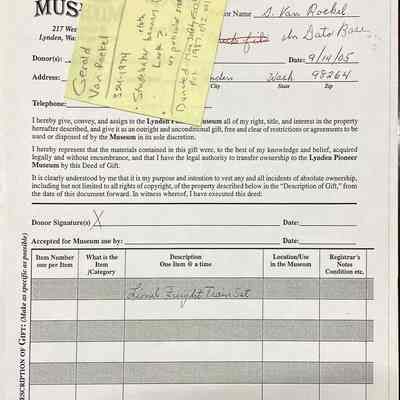 MUS
217 We
Lynden, Wa
Gerald
Van Roekel
354-1974
Studebaker
Look?
or Name G. Van Roekel
in Data Base
Donor(s)
Date: 9/14/05
Address:
nden Wash 98264
City State Zip
Telephone:
I hereby give, convey, and assign to the Lynden Museum all of my right, title, and interest in the property
hereafter described, and give it as an outright and unconditional gift, free and clear of restrictions or agreements to be used
or disposed of by the Museum in its sole discretion.
I hereby represent that the materials contained in this gift were, to the best of my knowledge and belief, acquired
legally and without encumbrance, and that I have the legal authority to transfer ownership to the Lynden Pioneer
Museum by this Deed of Gift.
It is clearly understood by me that it is my purpose and intention to vest any and all incidents of absolute ownership,
including but not limited to all rights of copyright, of the property described below in the "Description of Gift," from
the date of this document forward. In witness whereof, I have executed this deed:
Donor Signature(s) X Date:
Accepted for Museum use by: Date:
Item Number
one per Item
What is the
Item
/Category
Description
One Item @ a time
Location/Use
in the Museum
Registrar's
Notes
Condition etc.
Lionel Freight Train Set
DESCRIPTION OF GIFT: (Make as specific as possible)